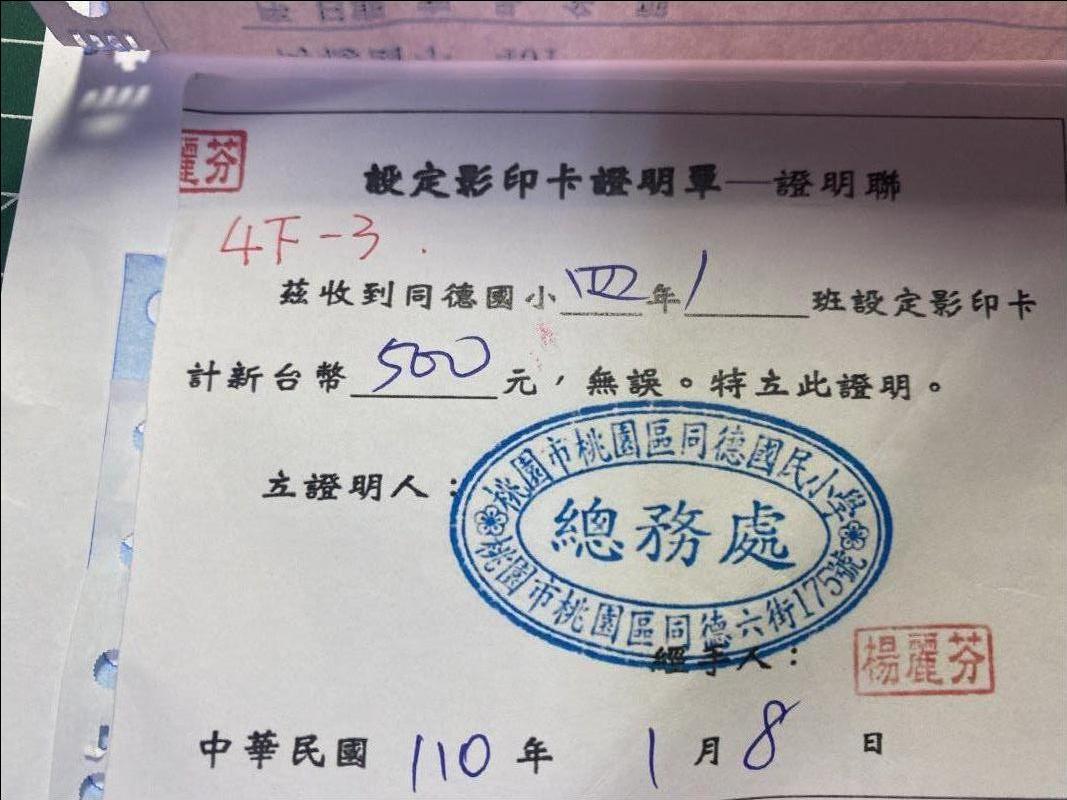 麗芬
設定影印卡證明單—證明聯
4下-3.
茲收到同德國小四年1班設定影印卡
計新台幣500元，無誤。特立此證明。
立證明人：
桃園市桃園區同德國民小學
總務處
桃園市桃園區同德六街175號
經手人：
楊麗芬
中華民國110年1月8日